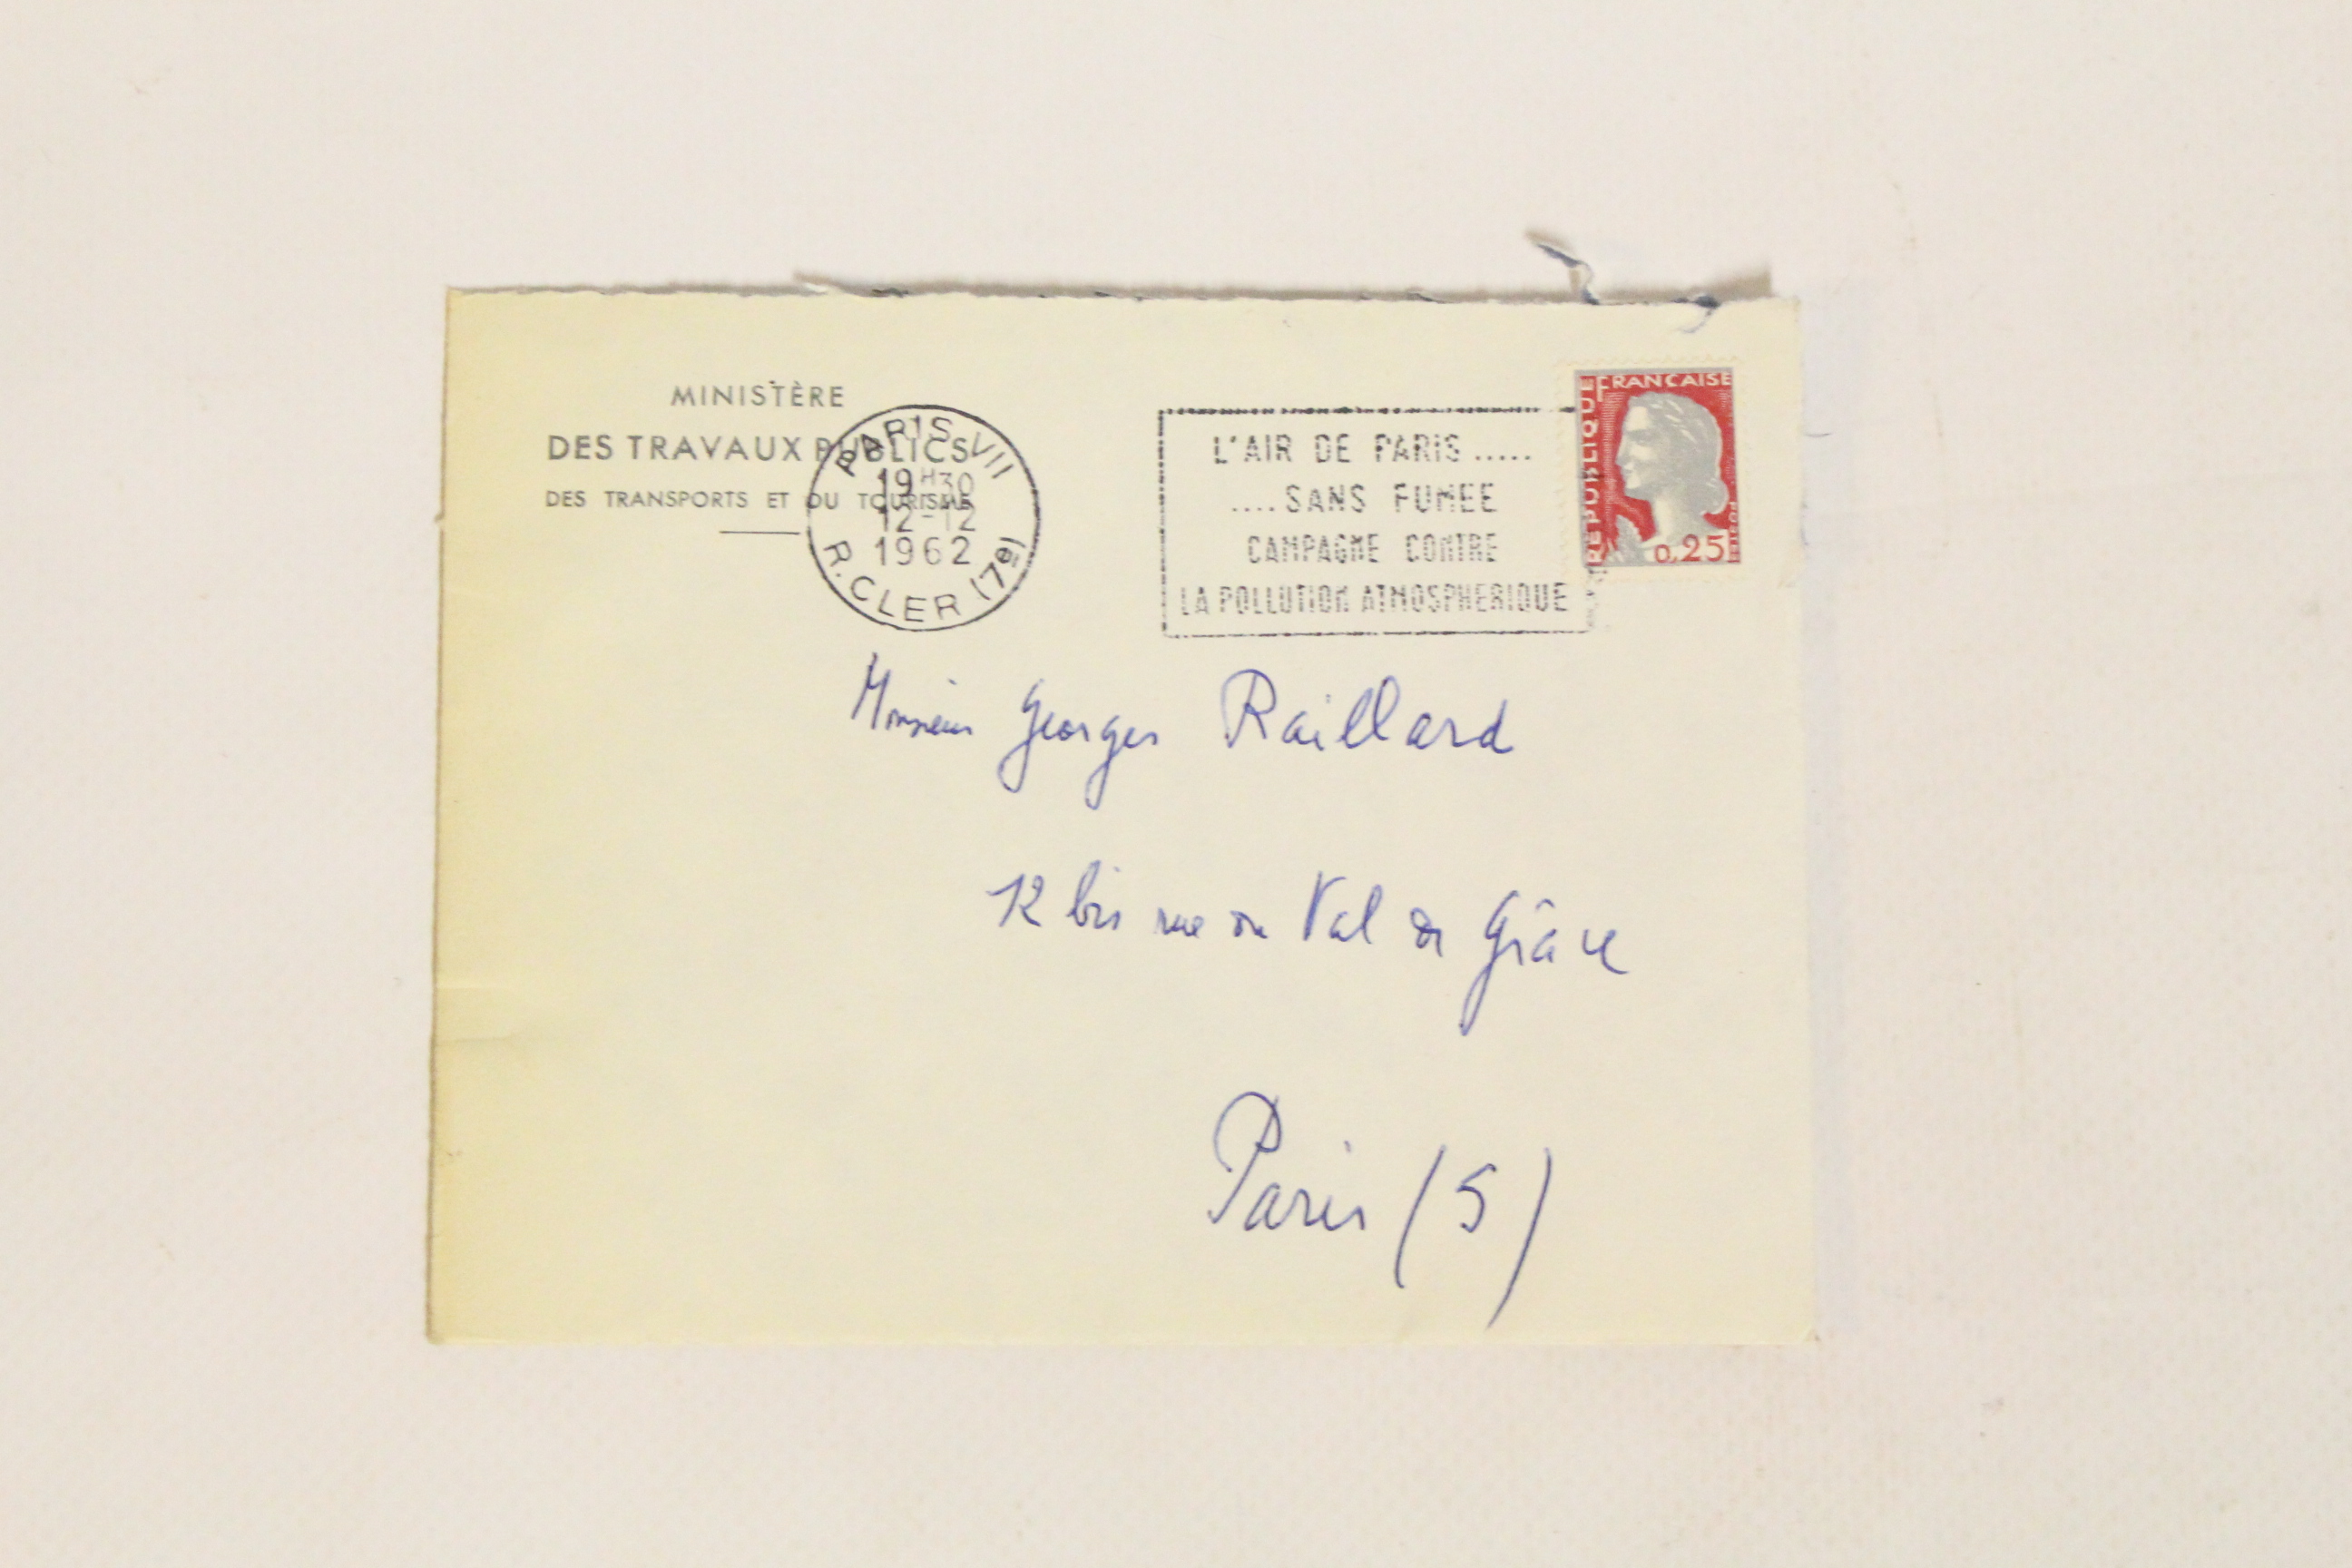 MINISTÈRE
DES TRAVAUX PUBLICS
DES TRANSPORTS ET DU TOURISME
PARIS VII
19H30
12-12
1962
R. CLER (7e)
L'AIR DE PARIS.....
....SANS FUMEE
CAMPAGNE CONTRE
LA POLLUTION ATMOSPHERIQUE
REPUBLIQUE
FRANCAISE
0,25
POSTES
Monsieur Georges Raillard
12 bis rue du Val de Grâce
Paris (5)